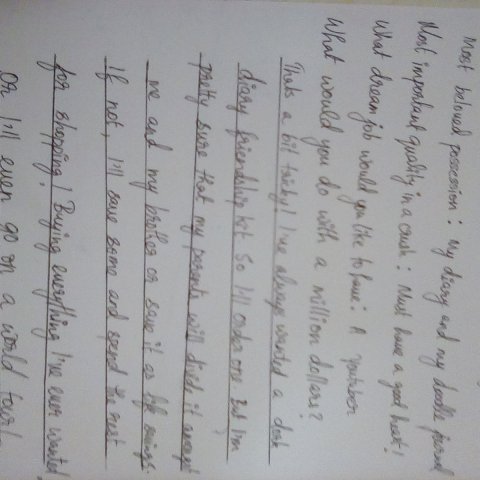 Most beloved possession : My diary and my doodle journal
Most important quality in a crush : Must have a good heart!
What dream job would you like to have : A youtuber
What would you do with a million dollars?
Thats a bit tricky! I've always wanted a
diary friendship kit so I'll order one. But I'm
pretty sure that my parents will divide it amongst
me and my brother or save it as life savings.
If not, I'll save some and spend the rest
for shopping! Buying everything I've ever wanted.
Or I'll even go on a world tour!